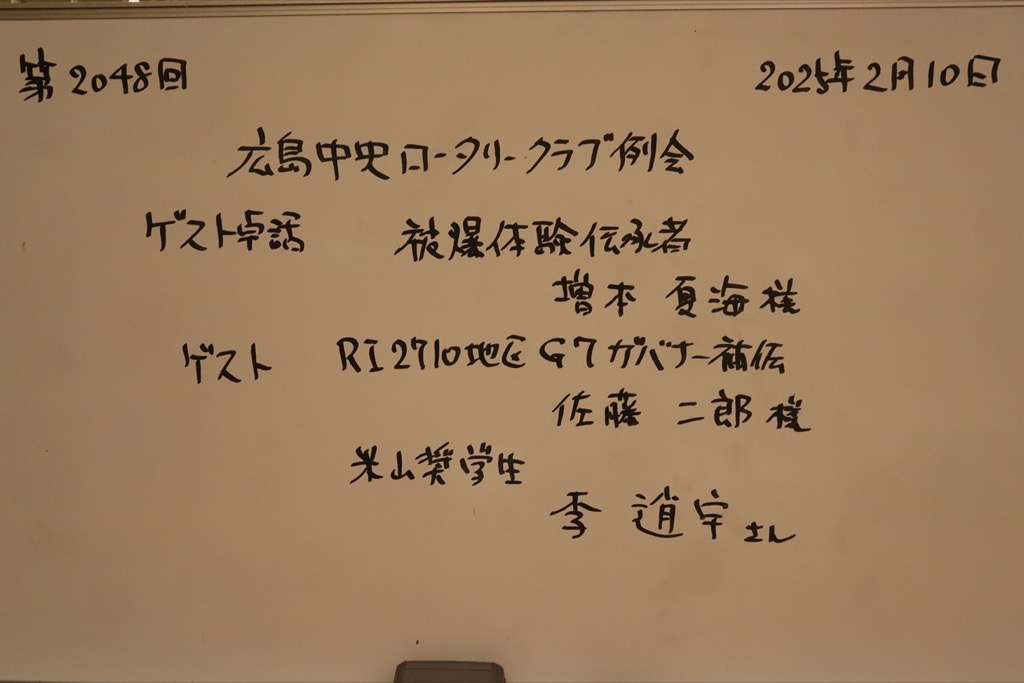 第2048回 2025年2月10日
広島中央ロータリークラブ例会
ゲスト卓話 被爆体験伝承者
増本 夏海様
ゲスト RI2710地区 G7ガバナー補佐
佐藤 二郎様
米山奨学生
李 逍宇さん